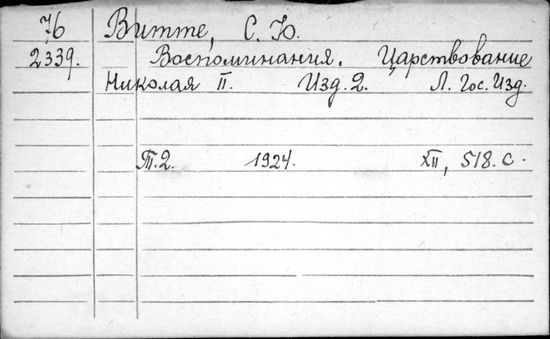 76 Витте, С. Ю.
2339. Воспоминания. Царствование
Николая II. Изд. 2. Л. Гос. Изд.
Т. 2. 1924. XII, 518. с.